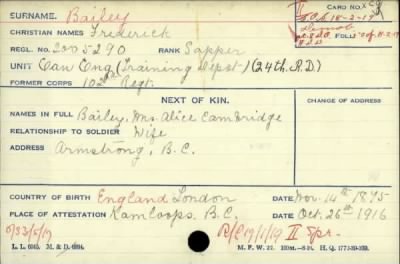 SURNAME. Bailey
CARD NO.
CHRISTIAN NAMES Frederick
S.O.S 18-2-19
REGL. NO. 2005290 RANK Sapper
Demob
FOLL.
UNIT Can Eng (Training Depot) (24th. R.D)
FORMER CORPS 102nd Regt.
NEXT OF KIN.
CHANGE OF ADDRESS
NAMES IN FULL Bailey, Mrs. Alice Cambridge
RELATIONSHIP TO SOLDIER Wife
ADDRESS Armstrong, B.C.
COUNTRY OF BIRTH England London DATE Nov. 14th 1875
PLACE OF ATTESTATION Kamloops. B.C. DATE Oct. 26th 1916
L. L. M. & D. M. F. W. 22.